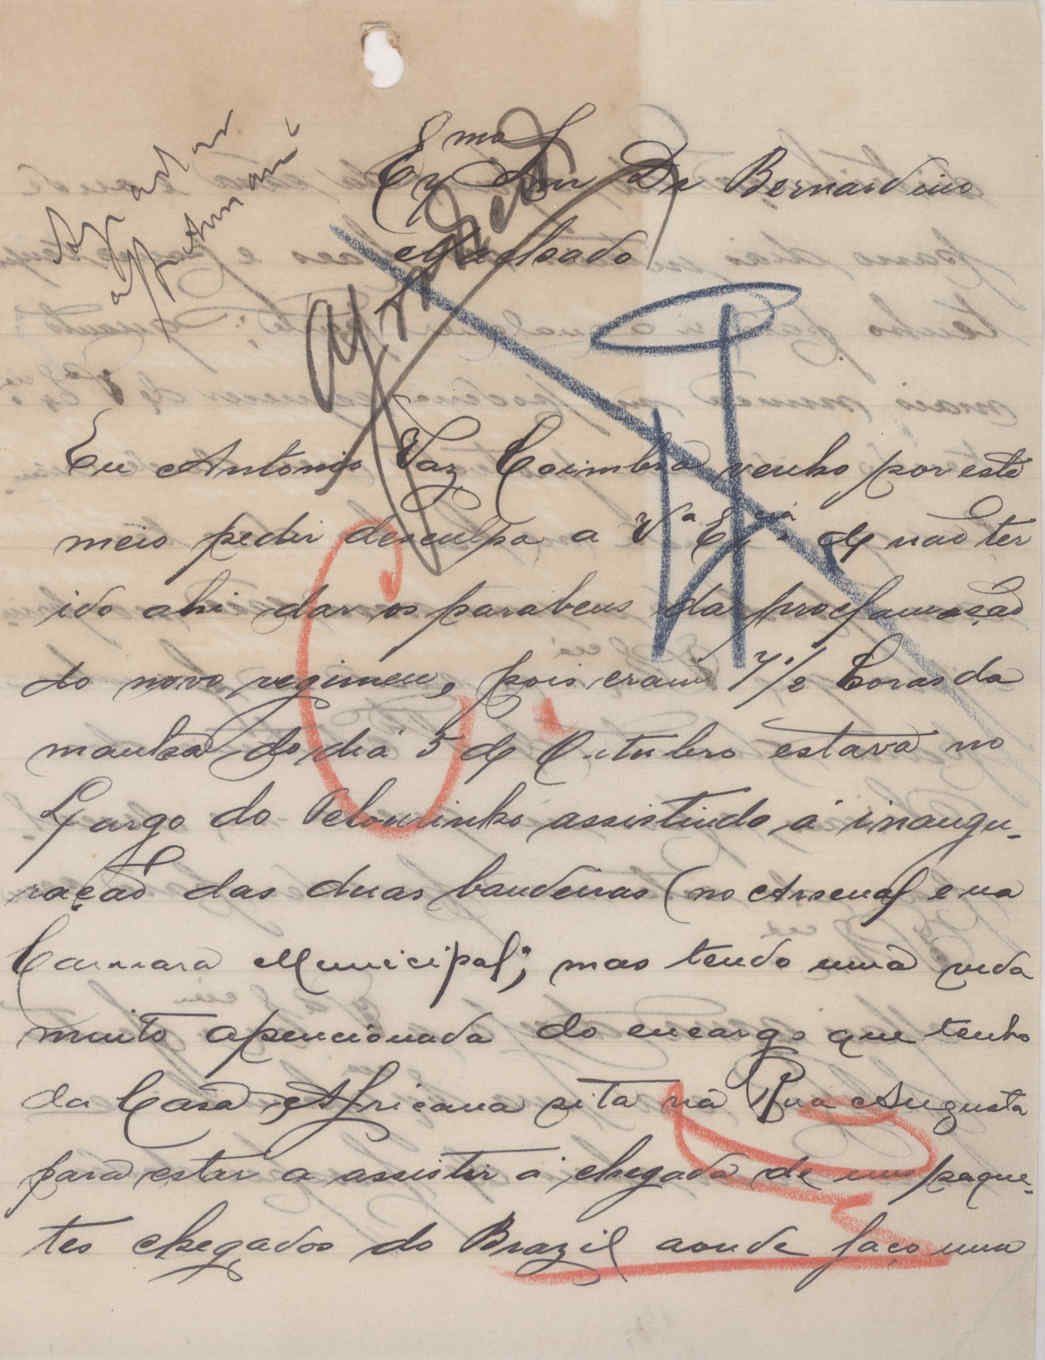 Exmo Snr Dr Bernardino
Machado
Eu Antonio Vaz Coimbra venho por este
meio pedir desculpa a Vª Exciª de não ter
ido ahi dar os parabens da proclamação
do novo regimen, pois eram 7 1/2 horas da
manhã do dia 5 de Outubro estava no
Largo do Pelourinho assistindo á inaugu-
ração das duas bandeiras (no Arsenal e na
Camara Municipal; mas tendo uma vida
muito apencionada do encargo que tenho
da Casa Africana sita na Rua Augusta
para estar a assistir á chegada de uns paque-
tes chegados do Brazil aonde faço uma